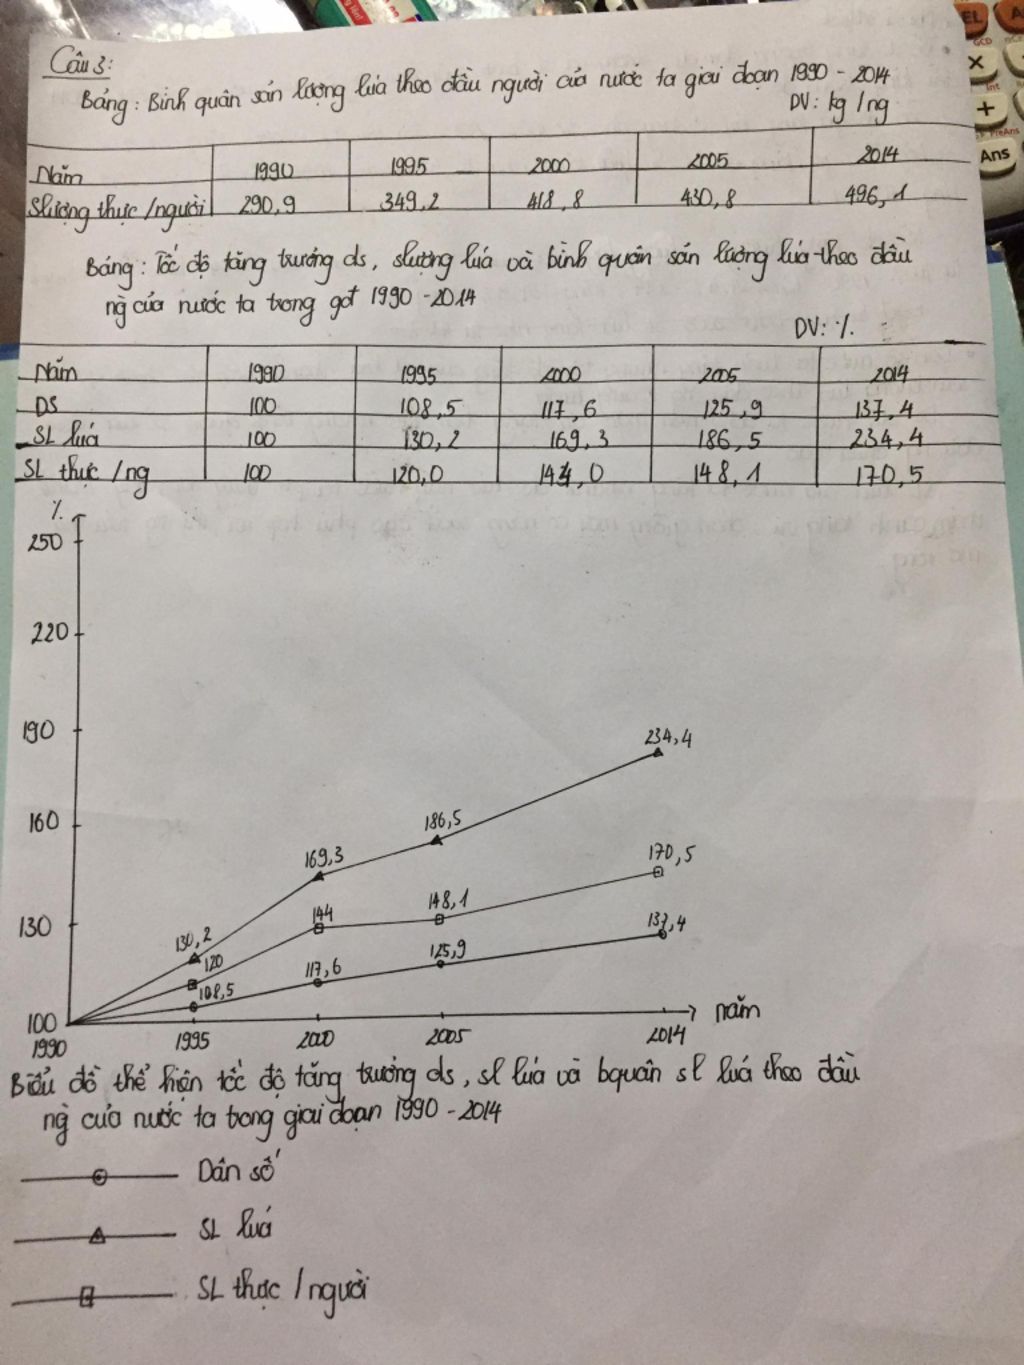 Câu 3:
Bảng: Bình quân sản lượng lúa theo đầu người của nước ta giai đoạn 1990 - 2014
DV: kg/ng
Năm 1990 1995 2000 2005 2014
Slượng thực/người 290,9 349,2 418,8 430,8 496,1
Bảng: Tốc độ tăng trưởng ds, slượng lúa và bình quân sản lượng lúa theo đầu
ng của nước ta trong gđ 1990 - 2014
DV: %
Năm 1990 1995 2000 2005 2014
DS 100 108,5 117,6 125,9 137,4
SL lúa 100 130,2 169,3 186,5 234,4
SL thực/ng 100 120,0 144,0 148,1 170,5
%
250
220
190
234,4
160
186,5
169,3
170,5
148,1
144
130
130,2
120
137,4
125,9
117,6
108,5
100
năm
1990 1995 2000 2005 2014
Biểu đồ thể hiện tốc độ tăng trưởng ds, sl lúa và bquân sl lúa theo đầu
ng của nước ta trong giai đoạn 1990 - 2014
Dân số
SL lúa
SL thực/người
EL
GCD
×
Int
+
PreAns
Ans